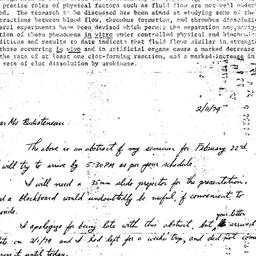 precise roles of physical factors such as fluid flow are not well under
The research to be discussed has been aimed at studying some of the
ractions between blood flow, thrombus formation, and thrombus dissolution
ral experiments have been devised which permit the separation and
tion of these phenomena in vitro under controlled physical and biochemical
ditions and results to date indicate that fluid flows similar in strength
those occurring in vivo and in artificial organs cause a marked decrease
the rate of at least one clot-forming reaction, and a marked increase in
rate of clot dissolution by urokinase.
2/11/79
ar Ms.
The above is an abstract of my seminar for February 22nd.
will try to arrive by 5:30PM as per your schedule.
I will need a 35mm slide projector for the presentation.
d a blackboard would undoubtedly be useful, if convenient, to
vide.
I apologize for being late with this abstract, but your letter arrived
te on 2/1/79 and I had left for a weeks trip, and did not
until today.